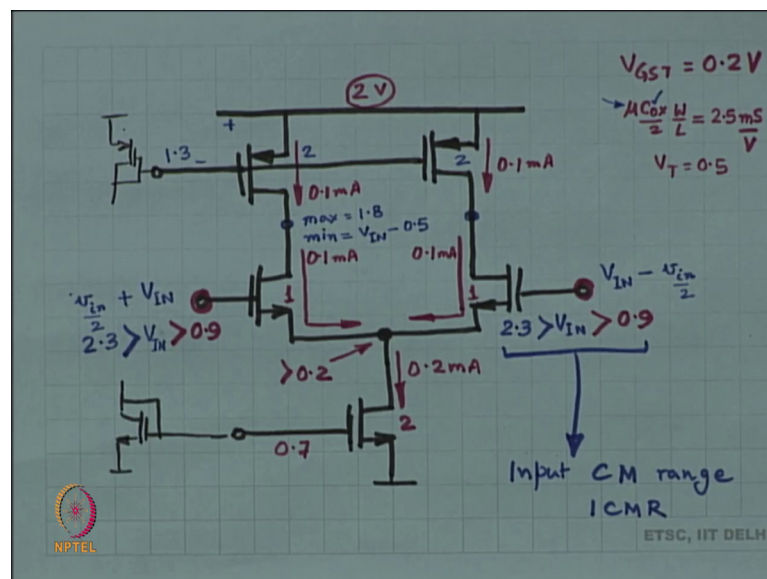 2 V
V_GST = 0.2 V
μCox/2 W/L = 2.5 mS/V
V_T = 0.5
+
1.3 -
2
2
0.1mA
0.1mA
max = 1.8
min = V_IN - 0.5
0.1mA
0.1mA
v_in/2 + V_IN
1
1
V_IN - v_in/2
2.3 > V_IN > 0.9
2.3 > V_IN > 0.9
>0.2
0.2mA
0.7
2
Input CM range
ICMR
NPTEL
ETSC, IIT DELH